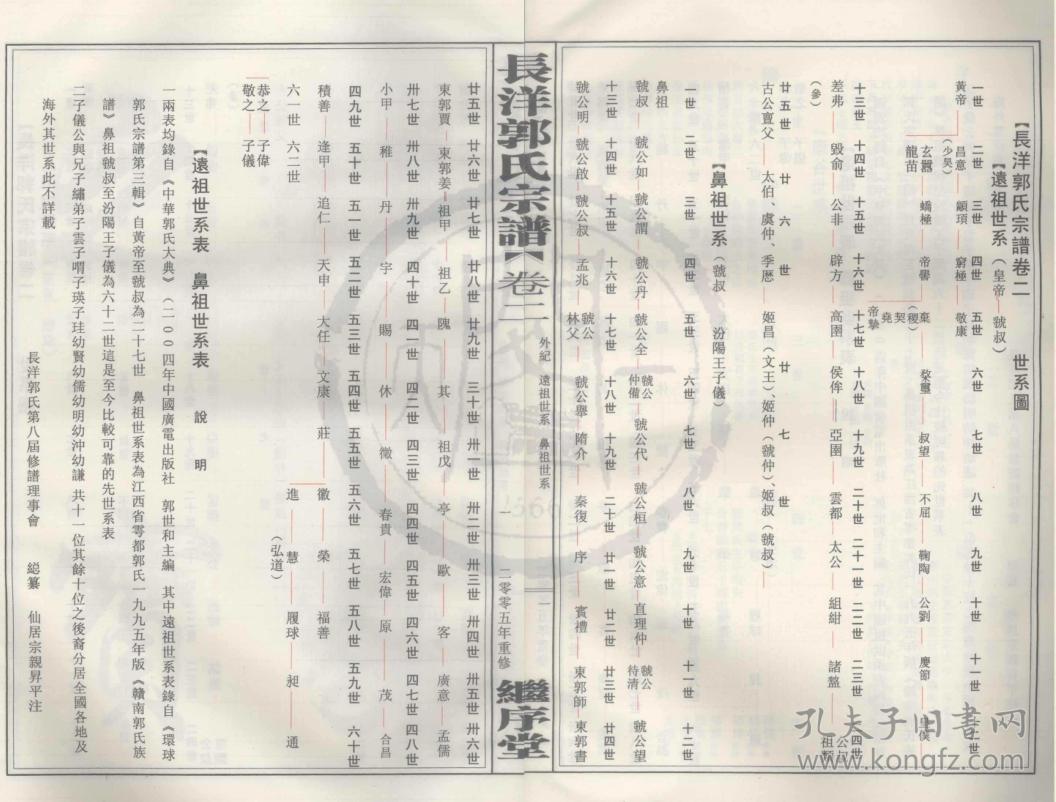 【長洋郭氏宗譜卷二　世系圖
【遠祖世系（皇帝—號叔）
一世　二世　三世　四世　五世　六世　七世　八世　九世　十世　十一世　十二世
黃帝　昌意　顓頊　窮極　敬康
（少昊）
玄囂　蟜極　帝嚳　（稷）棄　叔望　不屈　鞠陶　公劉　慶節　皇僕
龍苗
契
堯
帝摯
十三世　十四世　十五世　十六世　十七世　十八世　十九世　二十世　二十一世　二二世　二三世　四世
差弗　毀俞　公非　辟方　高圉　侯侔　亞圉　雲都　太公　組紺　諸盩　公叔祖類
（參）
廿五世　廿六世　廿七世
古公亶父　太伯、虞仲、季歷　姬昌（文王）、姬仲（號仲）、姬叔（號叔）
【鼻祖世系（號叔　汾陽王子儀）
一世　二世　三世　四世　五世　六世　七世　八世　九世　十世　十一世　十二世
鼻祖
號叔　號公如　號公謂　號公丹　號公全　號公仲備　號公代　號公桓　號公意　直理仲　號公待清　號公望
十三世　十四世　十五世　十六世　十七世　十八世　十九世　二十世　廿一世　廿二世　廿三世　廿四世
號公明　號公啟　號公叔　孟兆　號公林父　號公舉　隋介　秦復　序　賓禮　東郭師　東郭書
長洋郭氏宗譜【卷二　外紀　遠祖世系　鼻祖世系　一　二零零五年重修　繼序堂
廿五世　廿六世　廿七世　廿八世　廿九世　三十世　卅一世　卅二世　卅三世　卅四世　卅五世　卅六世
東郭賈　東郭姜　祖甲　祖乙　隗　其　祖戊　亭　歐　客　廣意　孟儒
卅七世　卅八世　卅九世　四十世　四一世　四二世　四三世　四四世　四五世　四六世　四七世　四八世
小甲　稚　丹　宇　賜　休　徵　春貴　宏偉　原　茂　合昌
四九世　五十世　五一世　五二世　五三世　五四世　五五世　五六世　五七世　五八世　五九世　六十世
積善　逢甲　追仁　天申　大任　文康　莊　徽　榮　福善
進　慧　履球　昶　通
（弘道）
六一世　六二世
恭之　子偉
敬之　子儀
【遠祖世系表　鼻祖世系表　說　明
一兩表均錄自《中華郭氏大典》（二００四年中國廣電出版社　郭世和主編　其中遠祖世系表錄自《環球
郭氏宗譜第三輯》自黃帝至號叔為二十七世　鼻祖世系表為江西省雩都郭氏一九九五年版《贛南郭氏族
譜》鼻祖號叔至汾陽王子儀為六十二世這是至今比較可靠的先世系表
二子儀公與兄子繡弟子雲子喟子瑛子珪幼賢幼儒幼明幼沖幼謙　共十一位其餘十位之後裔分居全國各地及
海外其世系此不詳載
長洋郭氏第八屆修譜理事會　總纂　仙居宗親昇平注
孔夫子旧書网
www.kongfz.com